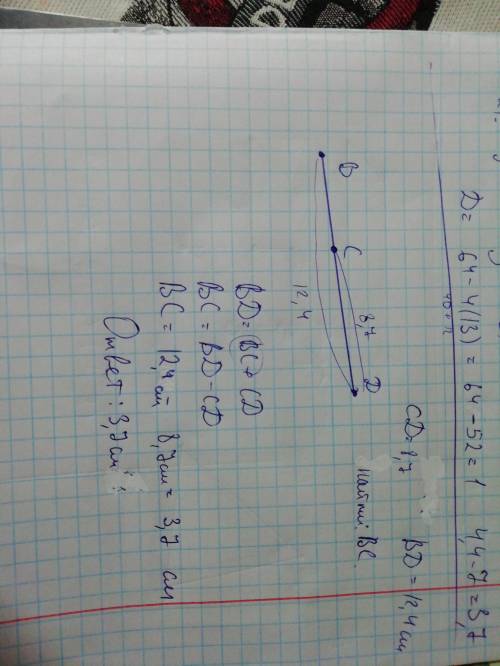 D = 64 - 4(13) = 64 - 52 = 1 4,4 - 7 = 3,7
CD = 8,7 BD = 12,4 см
Найти: BC
B C D
8,7
12,4
BD = BC + CD
BC = BD - CD
BC = 12,4 см - 8,7 см = 3,7 см
Ответ: 3,7 см